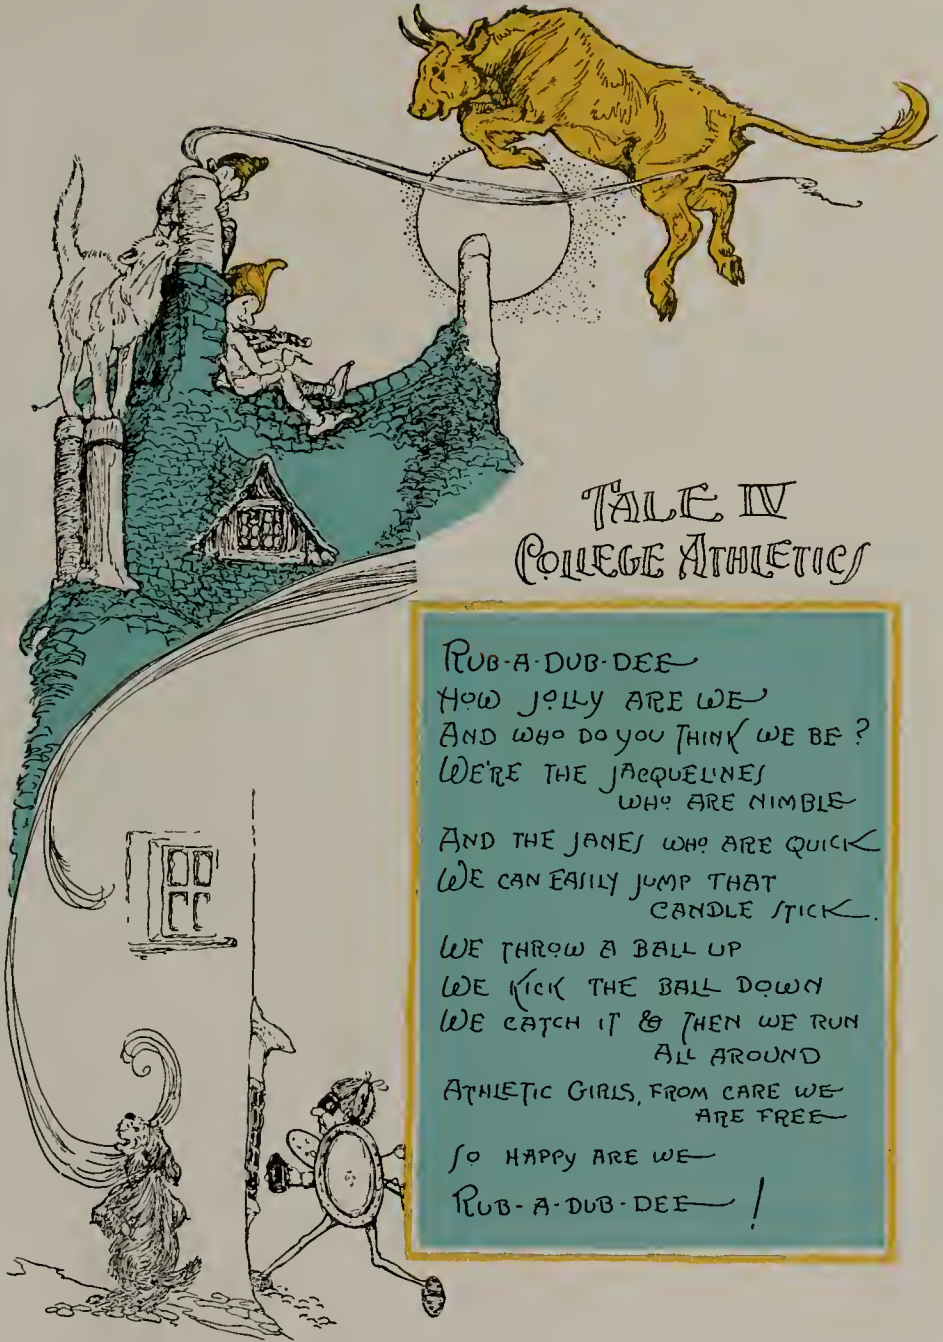 TALE IV
COLLEGE ATHLETICS
RUB-A-DUB-DEE
HOW JOLLY ARE WE
AND WHO DO YOU THINK WE BE?
WE'RE THE JACQUELINES
WHO ARE NIMBLE
AND THE JANES WHO ARE QUICK
WE CAN EASILY JUMP THAT
CANDLE STICK.
WE THROW A BALL UP
WE KICK THE BALL DOWN
WE CATCH IT & THEN WE RUN
ALL AROUND
ATHLETIC GIRLS, FROM CARE WE
ARE FREE
SO HAPPY ARE WE
RUB-A-DUB-DEE!